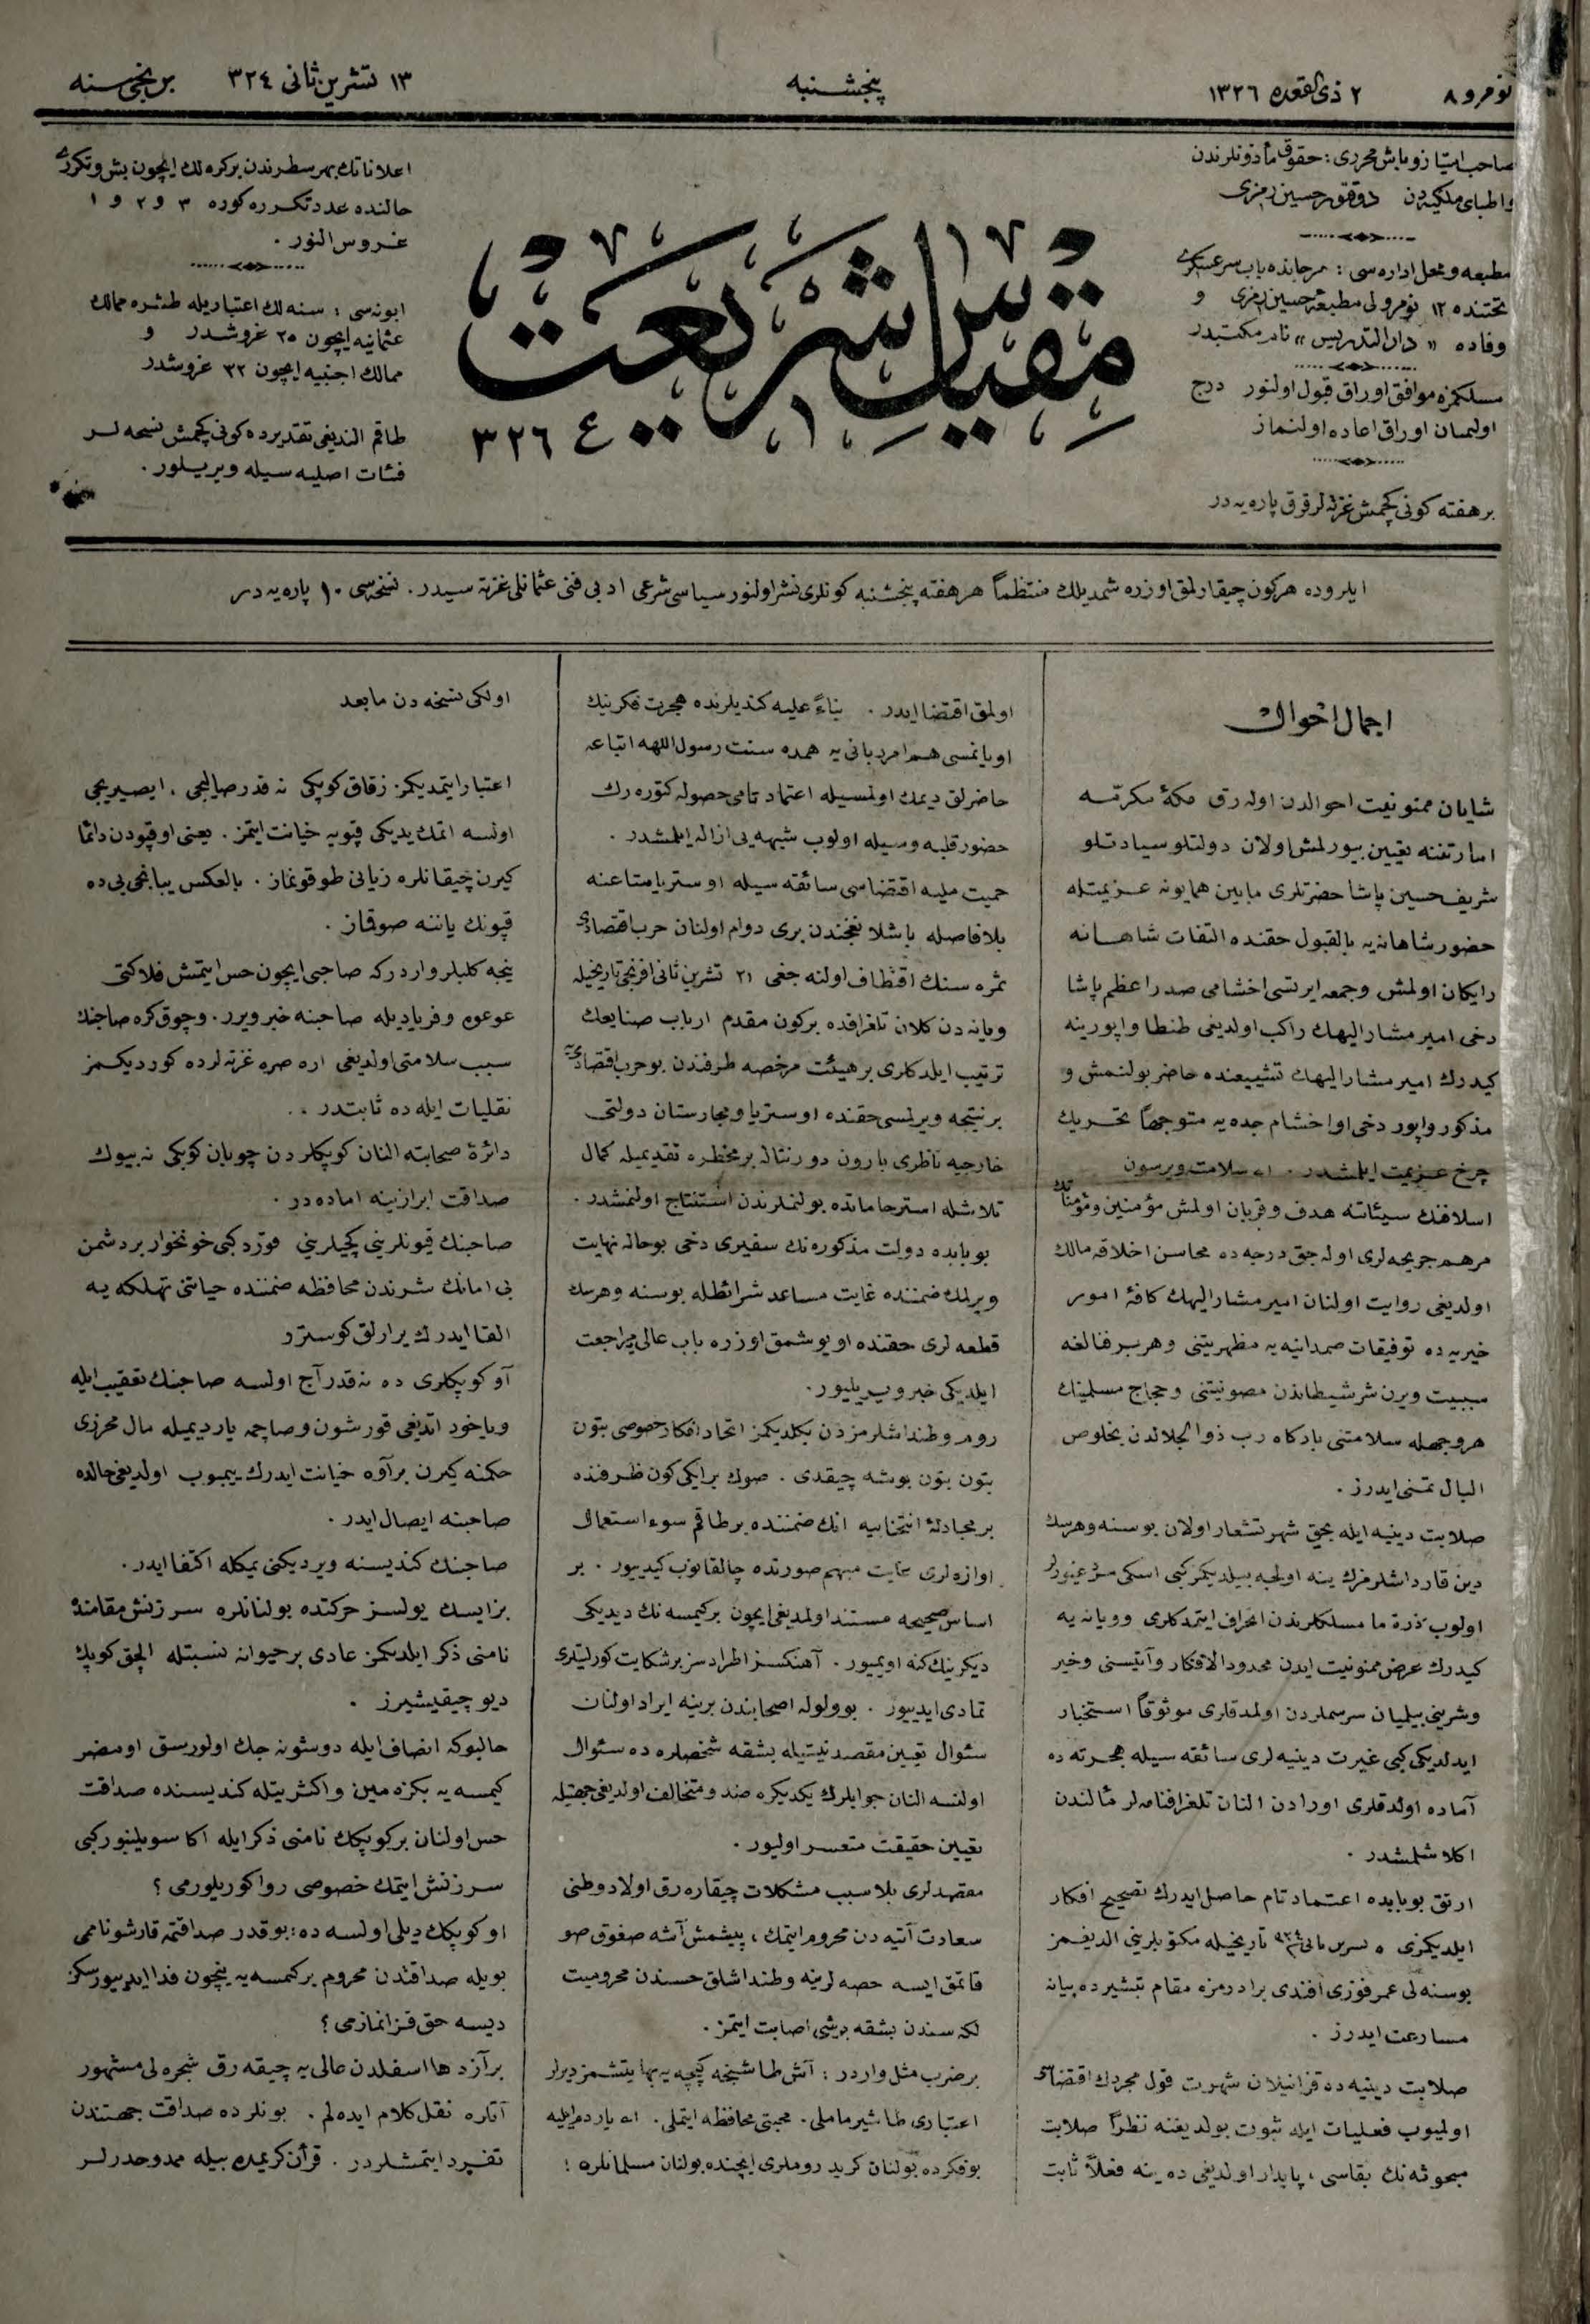 نومرو ٨
٢ ذی القعده ١٣٢٦
پنجشنبه
١٣ تشرین ثانی ٣٢٤
برنجی سنه
صاحب امتیاز و باش محرری : حقوق مأذونلرندن
و اطبای ملکیه دن دوقتور حسین رمزی
مطبعه و محل اداره سی : مرجانده باب سرعسکری
تحتنده ١٢ نومرولی مطبعهٔ حسین رمزی و
وفاده « دار التدریس » نام مکتبدر
مسلکمزه موافق اوراق قبول اولنور درج
اولیمان اوراق اعاده اولنماز
بر هفته کونی کچمش غزته لر قرق پاره یه در
مقیاس شریعت
ع ٣٢٦
اعلاناتك بهر سطرندن بر کره لك ایچون بش و تکرری
حالنده عدد تکرره کوره ٣ و ٢ و ١
غروس النور .
ابونه سی : سنه لك اعتباریله طشره ممالك
عثمانیه ایچون ٢٥ غروشدر و
ممالك اجنبیه ایچون ٣٢ غروشدر
طاقم الندیغی تقدیرده کونی کچمش نسخه لر
فئات اصلیه سیله ویریلور .
ایلروده هر کون چیقارلمق اوزره شمدیلك منتظماً هر هفته پنجشنبه کونلری نشر اولنور سیاسی شرعی ادبی فنی عثمانلی غزته سیدر . نسخه سی ١٠ پاره یه در
اجمال احوال
شایان ممنونیت احوالدن اوله رق مکهٔ مکرمه
امارتنه تعیین بیورلمش اولان دولتلو سیادتلو
شریف حسین پاشا حضرتلری مابین همایونه عزیمتله
حضور شاهانه یه بالقبول حقنده التفات شاهانه
رایکان اولمش و جمعه ایرتسی اخشامی صدر اعظم پاشا
دخی امیر مشار الیهك راکب اولدیغی طنطا واپورینه
کیدرك امیر مشار الیهك تشییعنده حاضر بولنمش و
مذکور واپور دخی او اخشام جده یه متوجهاً تحریك
چرخ عزیمت ایلمشدر . الله سلامت ویرسون
اسلافنك سیئاتنه هدف و قربان اولمش مؤمنین و مؤمناتك
مرهم جریحه لری اوله جق درجه ده محاسن اخلاقه مالك
اولدیغی روایت اولنان امیر مشار الیهك کافهٔ امور
خیریه ده توفیقات صمدانیه یه مظهریتنی و هر بر فنالغه
سببیت ویرن شر شیطاندن مصونیتنی و حجاج مسلمینك
هر وجهله سلامتنی بارکاه رب ذوالجلالدن بخلوص
البال تمنی ایدرز .
صلابت دینیه ایله بحق شهرتشعار اولان بوسنه و هرسك
دین قارداشلرمزك ینه اولجه بیلدیکمز کبی اسکی
اولوب ذرة ما مسلکلرندن انحراف ایتمدکلری و ویانه یه
کیدرك عرض ممنونیت ایدن محدود الافکار و آتیسنی و خیر
و شرینی بیلمیان سرسملردن اولمدقلری موثوقاً استخبار
ایدلدیکی کبی غیرت دینیه لری سائقه سیله هجرته ده
آماده اولدقلری اورادن النان تلغرافنامه لر مئالندن
اکلاشلمشدر .
ارتق بوبابده اعتماد تام حاصل ایدرك تصحیح افکار
ایلدیکمزی ٥ تشرین ثانی ٣٢٤ تاریخیله مکتوبلرینی الدیغمز
بوسنه لی عمر فوزی افندی برادرمزه مقام تبشیرده بیانه
مسارعت ایدرز .
صلابت دینیه ده قزانیلان شهرت قول مجردك اقتضاسی
اولمیوب فعلیات ایله ثبوت بولدیغنه نظراً صلابت
مبحوثه نك بقاسی ، پایدار اولدیغی ده ینه فعلاً ثابت
اولمق اقتضا ایدر . بناءً علیه کندیلرنده هجرت فکرینك
اویانمسی هم امر ربانی یه همده سنت رسول اللهه اتباعه
حاضرلق دیمك اولمسیله اعتماد تامی حصوله کتوره رك
حضور قلبه وسیله اولوب شبهه یی ازاله ایلمشدر .
حمیت ملیه اقتضاسی سائقه سیله اوستریا متاعنه
بلا فاصله باشلانغجندن بری دوام اولنان حرب اقتصادی
ثمره سنك اقتطاف اولنه جغی ٢١ تشرین ثانی افرنجی تاریخیله
ویانه دن کلان تلغرافده بر کون مقدم ارباب صنایعك
ترتیب ایلدکلری بر هیئت مرخصه طرفندن بو حرب اقتصادی یه
بر نتیجه ویرلمسی حقنده اوستریا و مجارستان دولتی
خارجیه ناظری بارون دورنتاله بر مخطره تقدیمیله کمال
تلاشله استرحاماتده بولنملرندن استنتاج اولنمشدر .
بوبابده دولت مذکوره نك سفیری دخی بو حاله نهایت
ویرلمك ضمننده غایت مساعد شرائطله بوسنه و هرسك
قطعه لری حقنده اویوشمق اوزره باب عالی یه مراجعت
ایلدیکی خبر ویریلیور .
روم وطنداشلرمزدن بکلدیکمز اتحاد افکار خصوصی بتون
بتون بتون بوشه چیقدی . صوك بر ایکی کون ظرفنده
بر مجادلهٔ انتخابیه انك ضمننده بر طاقم سوء استعمال
اوازه لری غایت مبهم صورتده چالقانوب کیدییور . بر
اساس صحیحه مستند اولمدیغی ایچون بر کیمسه نك دیدیکی
دیکرینك کنه اویمیور . آهنکسز اطرادسز بر شکایت کورلتیلری
تمادی ایدییور . بو ولوله اصحابندن برینه ایراد اولنان
سئوال تعیین مقصد نیتیله بشقه شخصلره ده سئوال
اولنسه النان جوابلرك یکدیکره ضد و متخالف اولدیغی جهتله
تعیین حقیقت متعسر اولیور .
مقصدلری بلا سبب مشکلات چیقاره رق اولاد وطنی
سعادت آتیه دن محروم ایتمك ، پیشمش آشه صغوق صو
قاتمق ایسه حصه لرینه وطنداشلق حسندن محرومیت
لکه سندن بشقه بر شی اصابت ایتمز .
بر ضرب مثل واردر : آتش طاشیخه کپچه یه بها یتشمز دیرلر
اعتباری طاشیرماملی . محبتی محافظه ایتملی . الله یاردم ایلیه
بو فکرده بولنان کرید روملری ایچنده بولنان مسلمانلره !
اولکی نسخه دن مابعد
اعتبار ایتمدیکمز زقاق کوپکی نه قدر صالیجی ، ایصیریجی
اولسه اتمك یدیکی قپویه خیانت ایتمز . یعنی او قپودن دائما
کیرن چیقانلره زیانی طوقونماز . بالعکس یبانجی یی ده
قپونك یاننه صوقماز .
نیجه کلبلر واردرکه صاحبی ایچون حس ایتمش فلاکتی
عوعوه و فریادیله صاحبنه خبر ویرر . و چوق کره صاحبنك
سبب سلامتی اولدیغی اره صره غزته لرده کوردیکمز
نقلیات ایله ده ثابتدر .
دائرهٔ صحابته النان کوپکلردن چوبان کوپکی نه بیوك
صداقت ابرازینه اماده در .
صاحبنك قیونلرینی کچیلرینی قورد کبی خونخوار بر دشمن
بی امانك شرندن محافظه ضمننده حیاتنی تهلکه یه
القا ایدرك یرارلق کوسترو
آو کوپکلری ده نه قدر آج اولسه صاحبنك تعقیب ایله
ویاخود اتدیغی قورشون و صاچمه یاردیمیله مال محرزی
حکمنه کیرن بر آوه خیانت ایدرك ییمیوب اولدیغی حالده
صاحبنه ایصال ایدر .
صاحبنك کندیسنه ویردیکنی ییمکله اکتفا ایدر .
بز ایسك یولسز حرکتده بولنانلره سرزنش مقامنده
نامنی ذکر ایلدیکمز عادی بر حیوانه نسبتله الچق کوپك
دیو چیقیشیرز .
حالبوکه انصاف ایله دوشونه جك اولورسق او مضر
کیمسه یه بکزه مین و اکثریتله کندیسنده صداقت
حس اولنان بر کوپکك نامنی ذکر ایله اکا سویلینور کبی
سرزنش ایتمك خصوصی روا کوریلورمی ؟
او کوپکك دیلی اولسه ده : بو قدر صداقتمه قارشو نامی
بویله صداقتدن محروم بر کمسه یه نیچون فدا ایدیورسکز
دیسه حق قزانمازمی ؟
بر آزدها اسفلدن عالی یه چیقه رق شجره لی مشهور
آتاره نقل کلام ایده لم . بونلر ده صداقت جهتندن
تفرد ایتمشلردر . قرآن کریمده بیله ممدوحدرلر